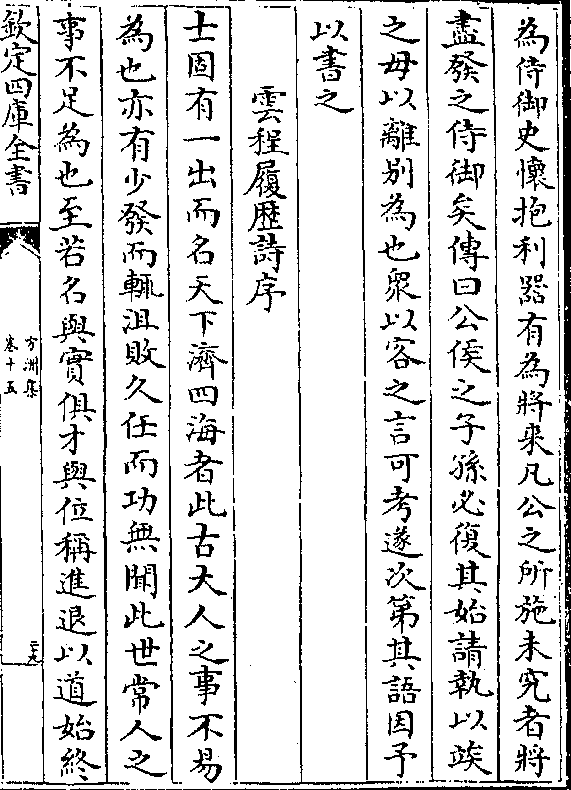 為侍御史懷抱利器有為將来凡公之所施未究者將
盡發之侍御矣傳曰公侯之子孫必復其始請執以竢
之毋以離别為也衆以客之言可考遂次第其語因予
以書之
雲程履歴詩序
士固有一出而名天下濟四海者此古大人之事不易
為也亦有少發而輒沮敗久任而功無聞此世常人之
事不足為也至若名與實俱才與位稱進退以道始終
欽定四庫全書
方洲集
卷十五
二十九